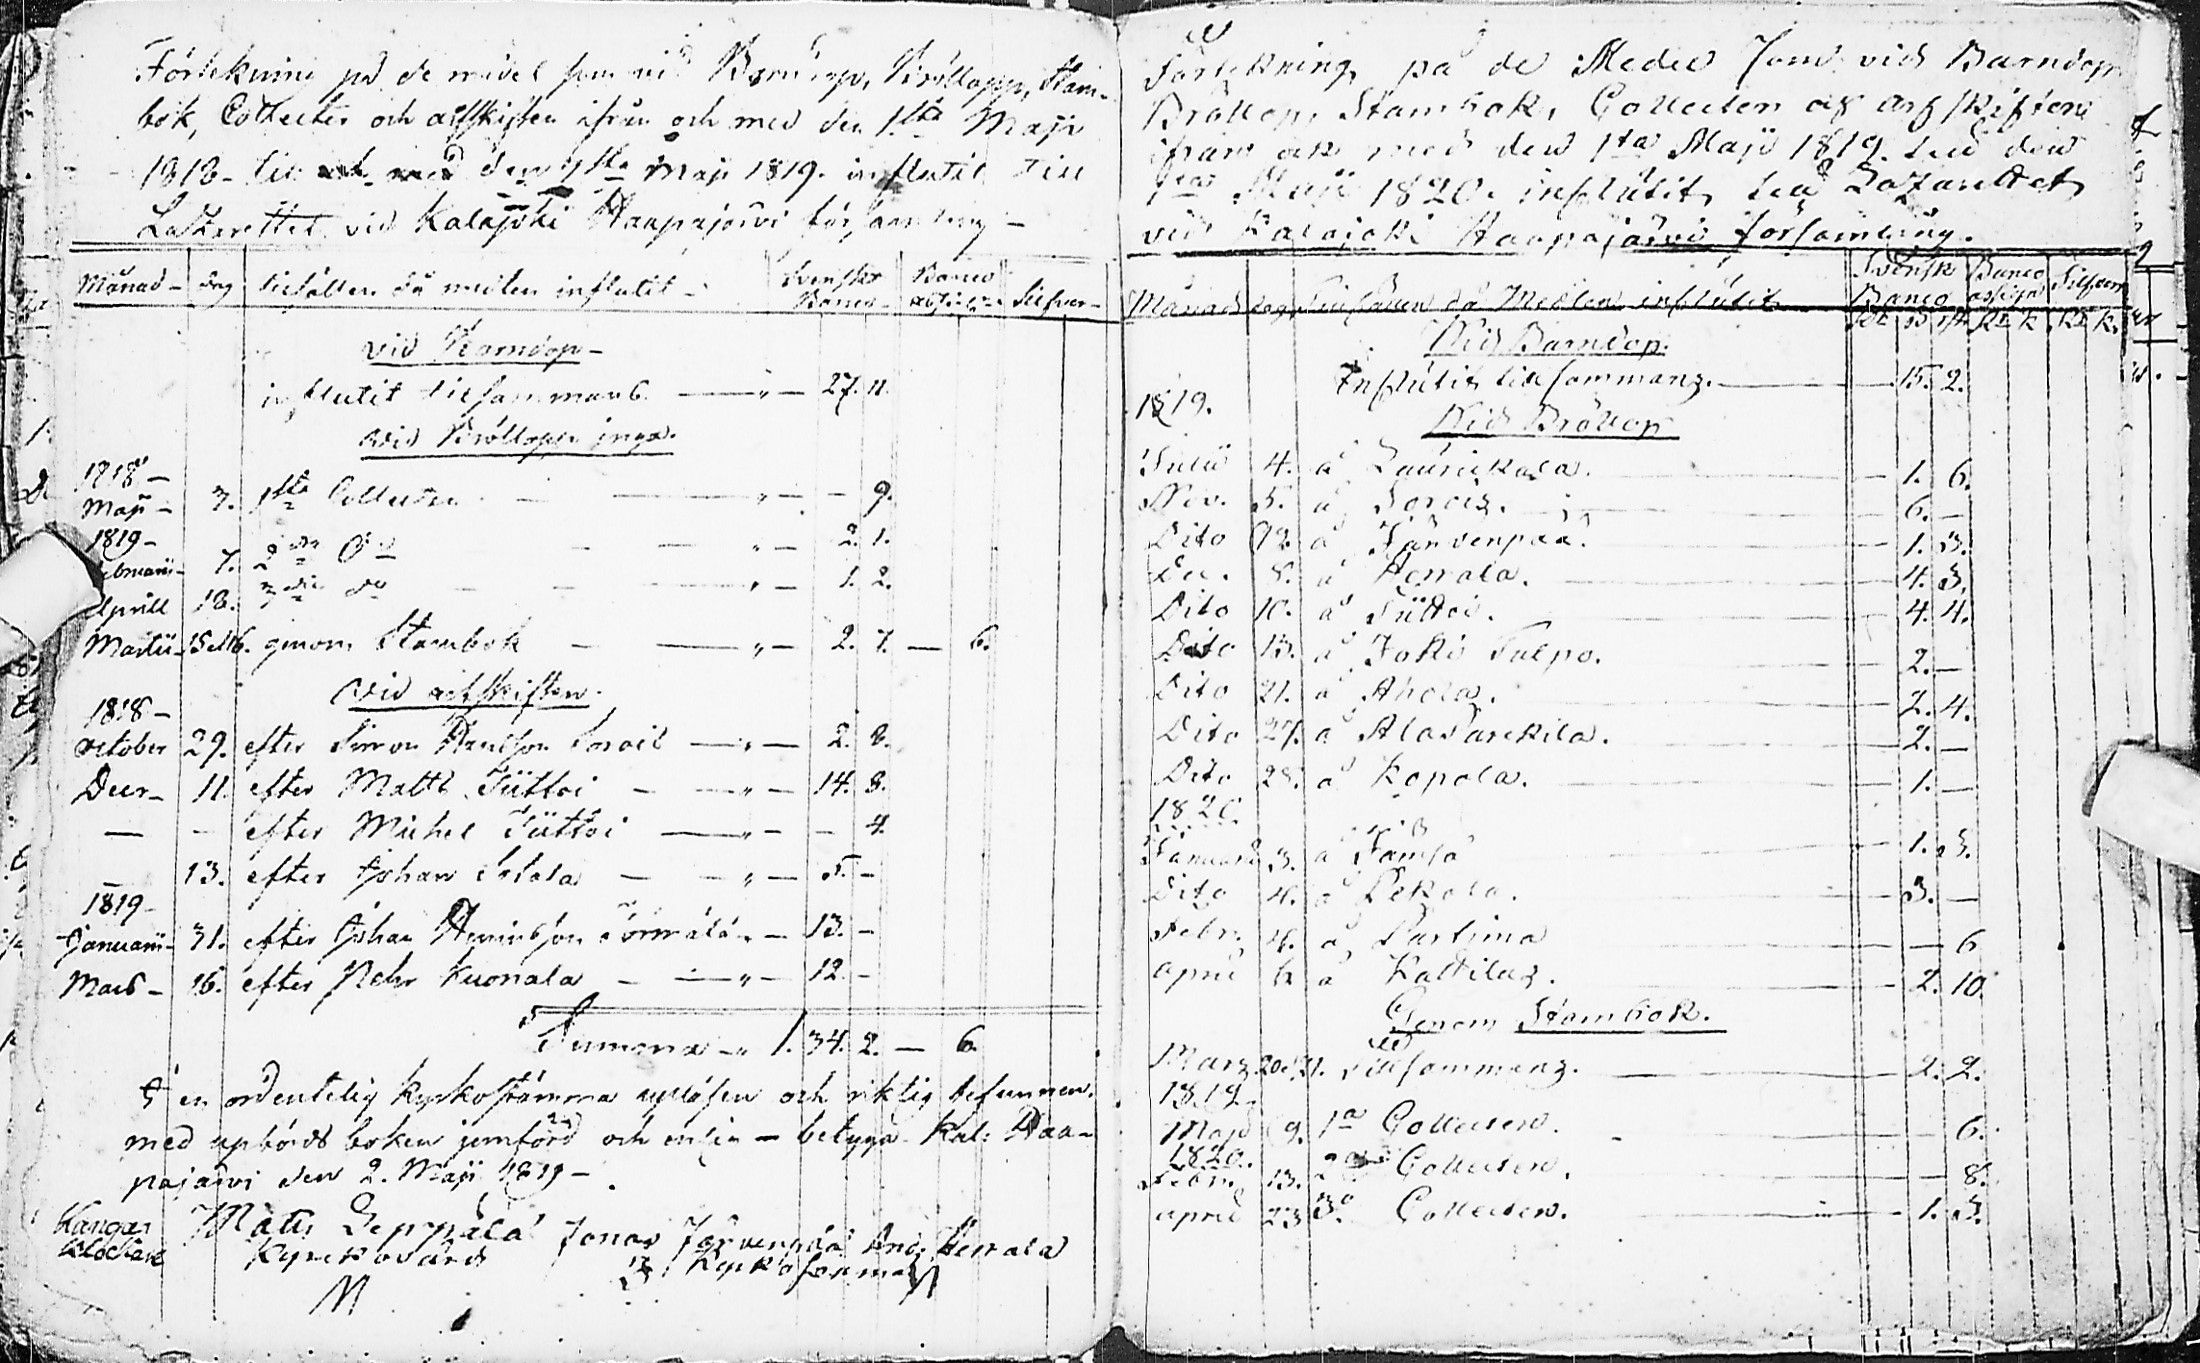 Förtekning på de medel som vid Barndop, Bröllopp, Stam-
bok, Collecter och arfskiften ifrån och med den 1sta Maji
1818 - till och med den 1sta Maji 1819. influtit till
Lazarettet vid Kalajoki Haapajärvi församling -
Månad - dag tillfällen då medlen influtit - Svenska Banco - Banco Silfver -
vid Barndop -
influtit tillsammans - " - 27. 11.
vid Bröllopp inga.
1818 -
Maji - 3. 1sta Collecten - - " - - 9.
1819 -
Februarii - 7. 2dra do - - " - 2. 1.
Aprill 18. 3die do - - " - 1. 2.
Martii - 15 et 16. genom Stambok - - " - 2. 7. - 6.
vid arfskiften.
1818 -
October 29. efter Simon Soroil - " - 2. 8.
Decr - 11. efter Matts Tüttoi - - " - 14. 8.
- - efter Michel Tüttoi - " - - 4.
- 13. efter Johan - - " - 5. -
1819 -
Januarii - 31. efter Johan Henriksson Törmälä " - 13. -
Mars - 16. efter Pehr Kuonala - - " - 12. -
Summa - " 1. 34. 2. - 6.
I en ordentelig kyrkostämma uplåsen och riktig befunnen.
med upbörds boken jemförd och enlig - betyga Kal: Haa-
pajärvi den 2. Maji 1819 -
Kangas Matts Leppälä Jonas Järvenpää And: Herrala
Klockare Kyrckovärd Kyrko
M
Förtekning på de Medel som vid Barndop
Bröllop, Stambok, Collecten ok arfskiften
ifrån ok med den 1sta Maji 1819. till den
1sta Maji 1820. inflütit till Lazarettet
vid Kalajoki Haapajärvi församling.
Månad dag Tillfällen då Medlen inflütit Svensk Banco Banco assign Silfver
Vid Barndop.
Inflütit tillsammans. 15. 2.
1819.
Vid Bröllop
Julii 4. å Laurickala. 1. 6.
Nov. 5. å Sorois. 6. -
Dito 12. å Järvenpää. 1. 3.
Dec. 5. å Herrala. 4. 3.
Dito 10. å Tüttoi. 4. 4.
Dito 13. å Joki Tulpo. 2. -
Dito 21. å Ahola. 2. 4.
Dito 27. å Ala Parckila. 2. -
Dito 28. å Kopola. 1. -
1820.
Januari 3. å Jämsä 1. 3.
Dito 4. å Pekola. 3. -
Febr. 4. å Partima - 6
April 6 å Kattilas. 2. 10.
Genom Stambok.
Mars 20 21. tillsammans. 2. 2.
1819.
Maji 9. 1a Collecten. - 6.
1820.
Febr. 13. 2a Collecten. - 8.
April 23 3a Collecten. 1. 3.